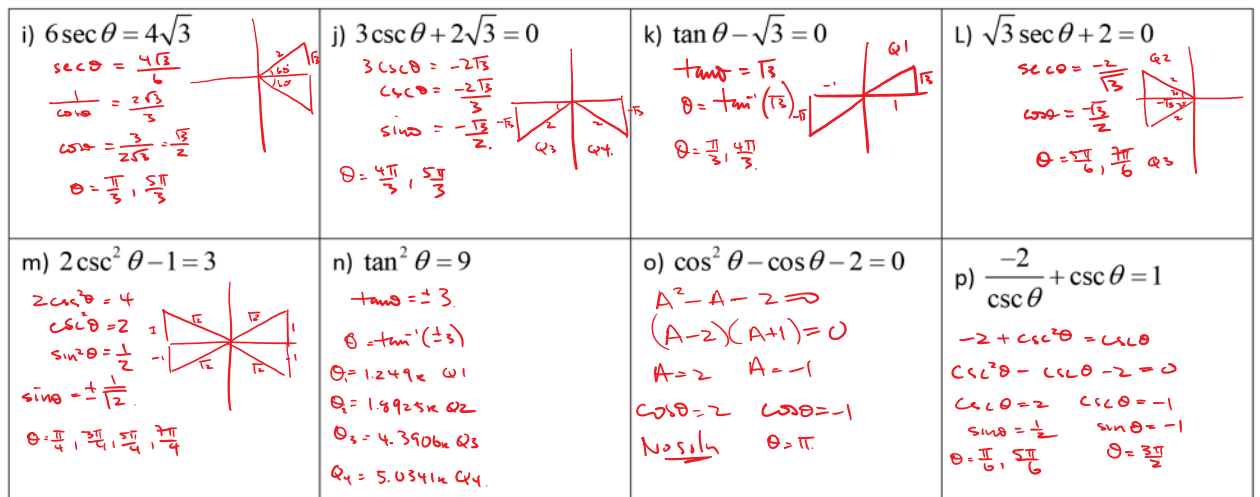 i) 6 sec θ = 4√3
secθ = 4√3/6
1/cosθ = 2√3/3
cosθ = 3/2√3 = √3/2
θ = π/3, 5π/3
2
√3
60°
60°
j) 3 csc θ + 2√3 = 0
3cscθ = -2√3
cscθ = -2√3/3
sinθ = -√3/2.
θ = 4π/3, 5π/3
-√3
2
2
-√3
Q3
Q4.
k) tan θ − √3 = 0
tanθ = √3
θ = tan⁻¹(√3)
θ = π/3, 4π/3.
Q1
-1
√3
1
-√3
L) √3 sec θ + 2 = 0
secθ = -2/√3
cosθ = -√3/2
θ = 5π/6, 7π/6 Q3
Q2
2
-√3
2
m) 2 csc² θ − 1 = 3
2csc²θ = 4
csc²θ = 2
sin²θ = 1/2
sinθ = ± 1/√2.
θ = π/4, 3π/4, 5π/4, 7π/4
√2
√2
1
1
-1
-1
√2
√2
n) tan² θ = 9
tanθ = ± 3.
θ = tan⁻¹(±3)
θ₁ = 1.249r Q1
θ₂ = 1.8925r Q2
θ₃ = 4.3906r Q3
θ₄ = 5.0341r Q4.
o) cos² θ − cos θ − 2 = 0
A² − A − 2 = 0
(A−2)(A+1) = 0
A = 2 A = −1
cosθ = 2 cosθ = −1
No soln θ = π.
p) −2/csc θ + csc θ = 1
−2 + csc²θ = cscθ
csc²θ − cscθ − 2 = 0
cscθ = 2 cscθ = −1
sinθ = 1/2 sinθ = −1
θ = π/6, 5π/6 θ = 3π/2